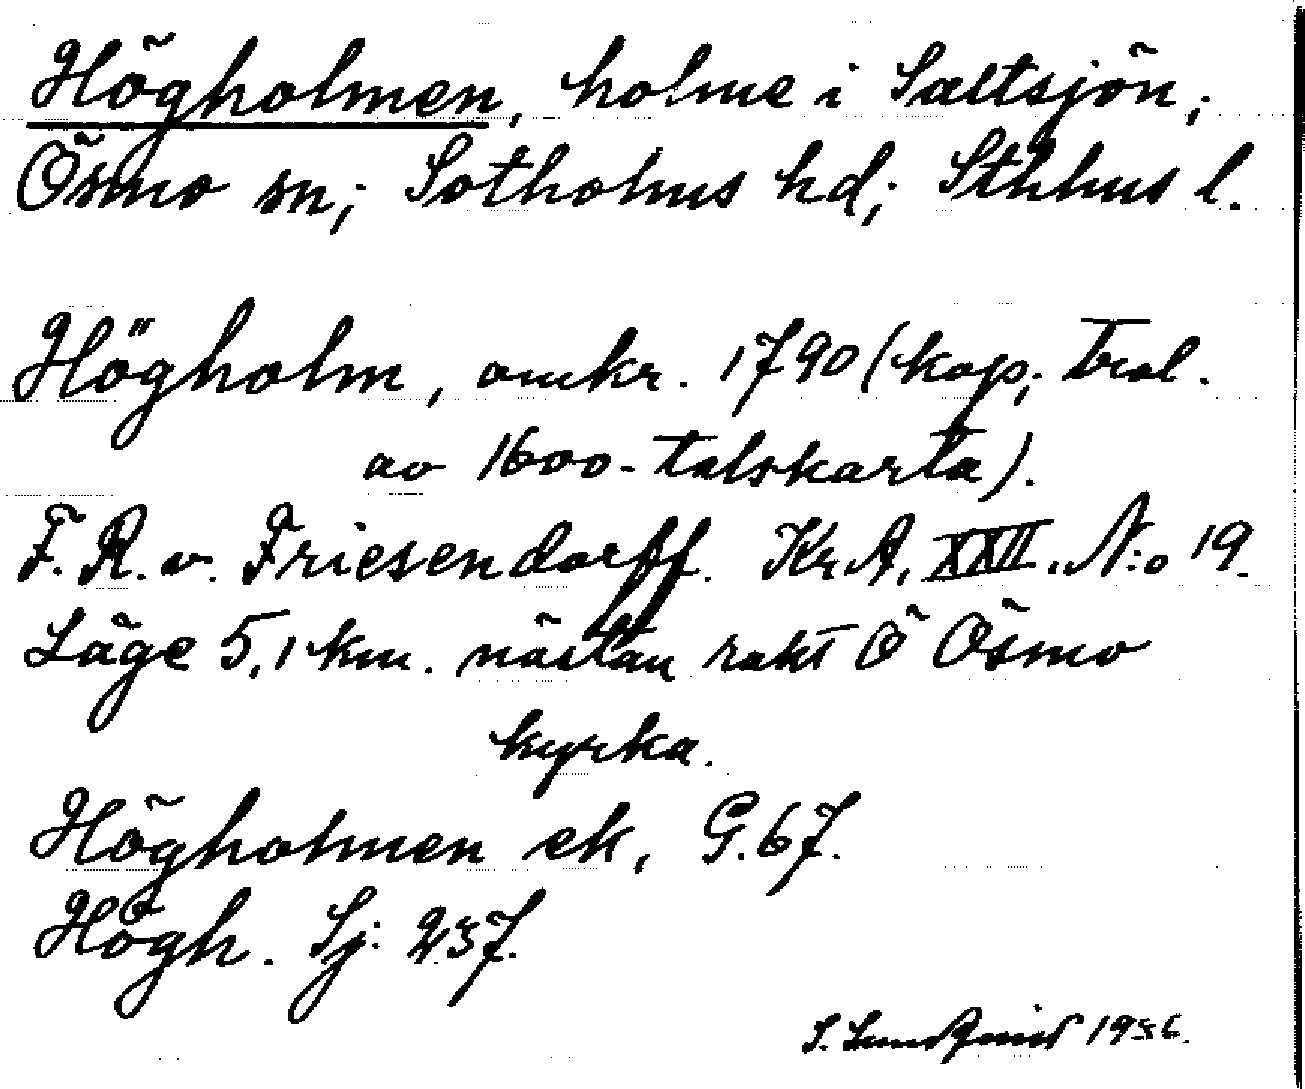 Högholmen, holme i Saltsjön;
Ösmo sn; Sotholms hd; Sthlms l.
Högholm, omkr. 1790 (kop, trol.
av 1600-talskarta).
F. R. v. Friesendorff. Kr. A. XXII. N:o 19.
Läge 5,1 km. nästan rakt Ö Ösmo
kyrka.
Högholmen ek, G. 67.
Högh. Sj: 237.
S. Lundqvist 1936.